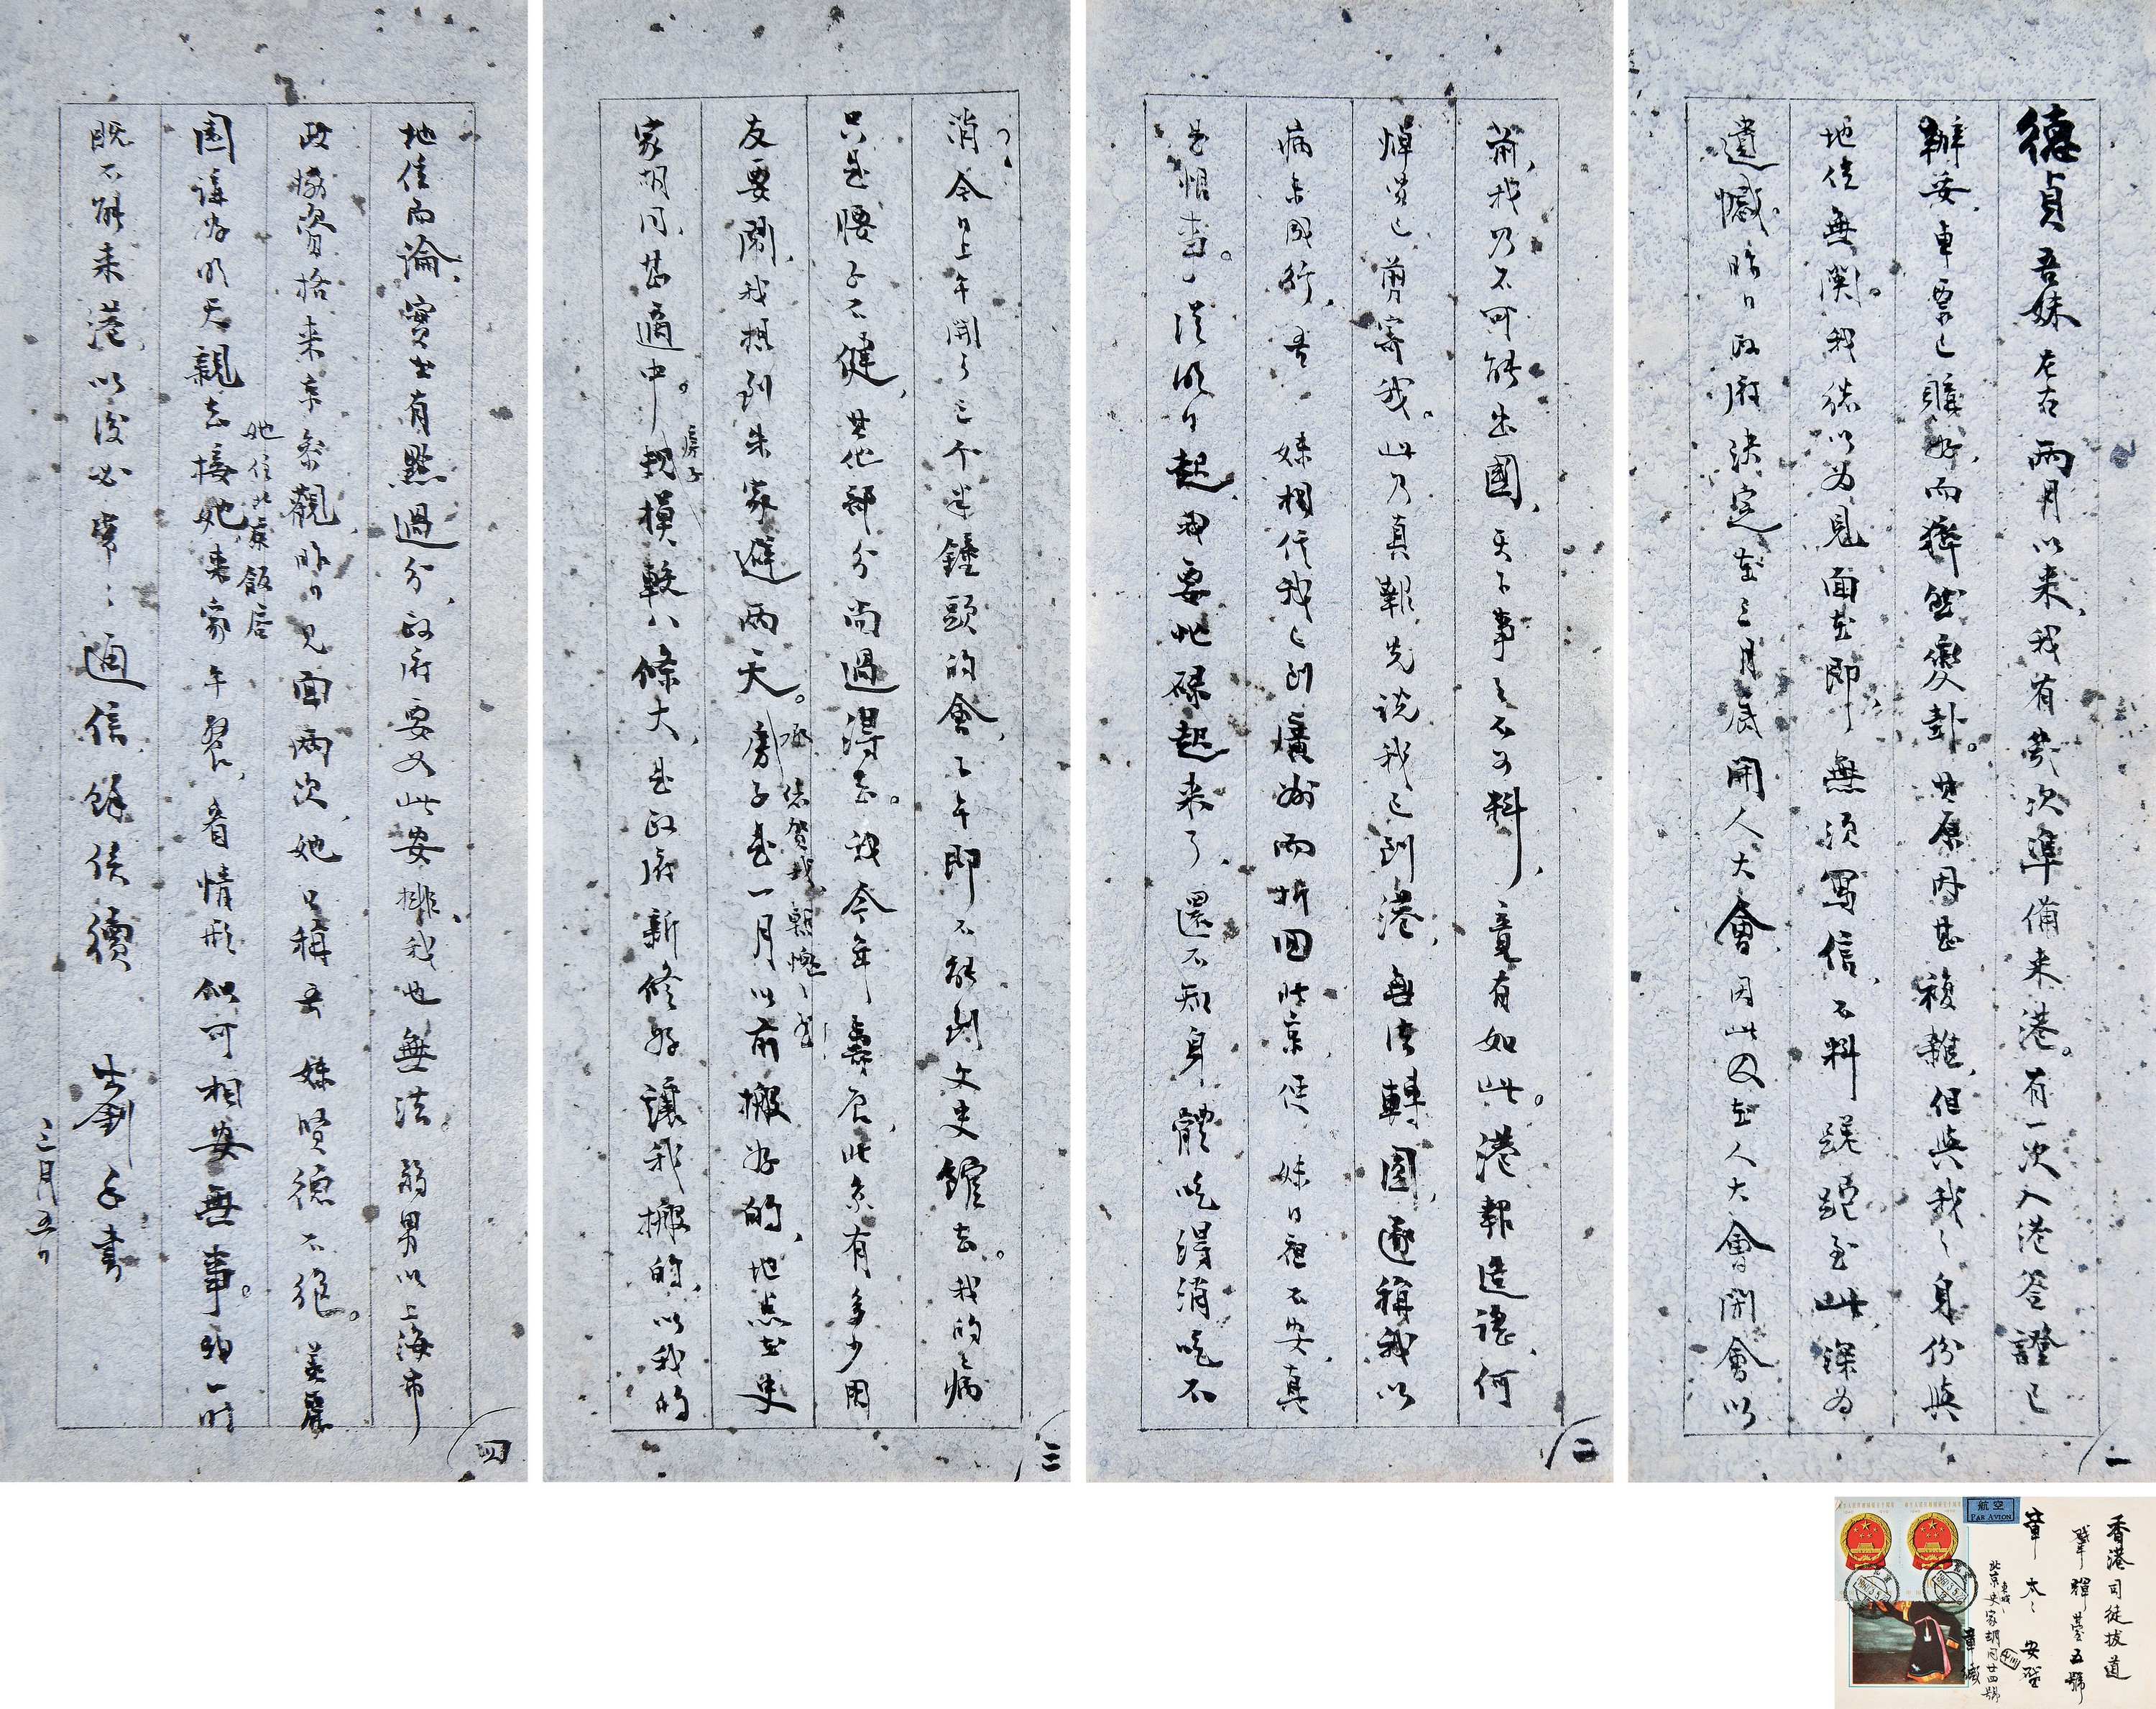 德貞吾妹左右兩月以來我有幾次準備來港。有一次入港簽證已
辦妥車票已購好而猝然變卦。其原因甚複雜但與我之身份與
地位無關。我總以為見面在即無須寫信不料蹉跎至此深為
遺憾。昨日政府決定在三月底開人大會因此又在人大會開會以
前我乃不可能出國天下事之不可料竟有如此。港報造謠何
焯賢已剪寄我。此乃真報先說我已到港無法轉圜遂稱我以
病未成行吾妹相信我已到廣州而折回北京使妹日夜不安真
是恨事。從明日起我要忙碌起來了還不知身體吃得消吃不
消今日上午開了三個半鐘頭的會下午即不能到文史館去。我的病
只是腰子不健其他部分尚過得去。我今年壽辰此京有多少朋
友要鬧我想到朱家避兩天。房子是一月以前搬好的地點在史
承總賀我慚愧之至
家胡同甚適中。規模較八條大是政府新修好讓我搬的以我的
房子
地位而論實在有點過分政府要如此安排我也無法。弱男以上海市
政協資格來京參觀昨日見面兩次她只稱吾妹賢德不絕。美麗
她住北京飯店
園請好明天親去接她來家午餐看情形似可相安無事。我一時
既不能來港以後必常常通信餘俟續
士釗手書
三月五日
一
二
三
四
香港司徒拔道
肇輝臺五號
章太太 安啓
北京東城史家胡同廿四號
章緘
航空
PAR AVION